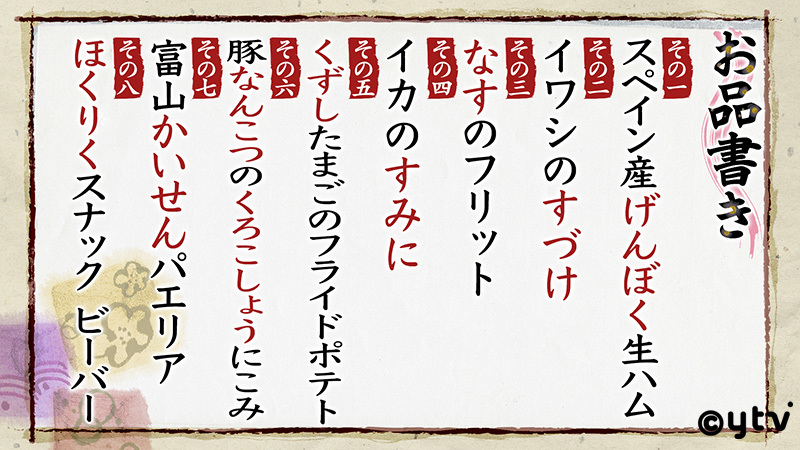 お品書き
その一
スペイン産げんぼく生ハム
その二
イワシのすづけ
その三
なすのフリット
その四
イカのすみに
その五
くずしたまごのフライドポテト
その六
豚なんこつのくろこしょうにこみ
その七
富山かいせんパエリア
その八
ほくりくスナック ビーバー
©ytv